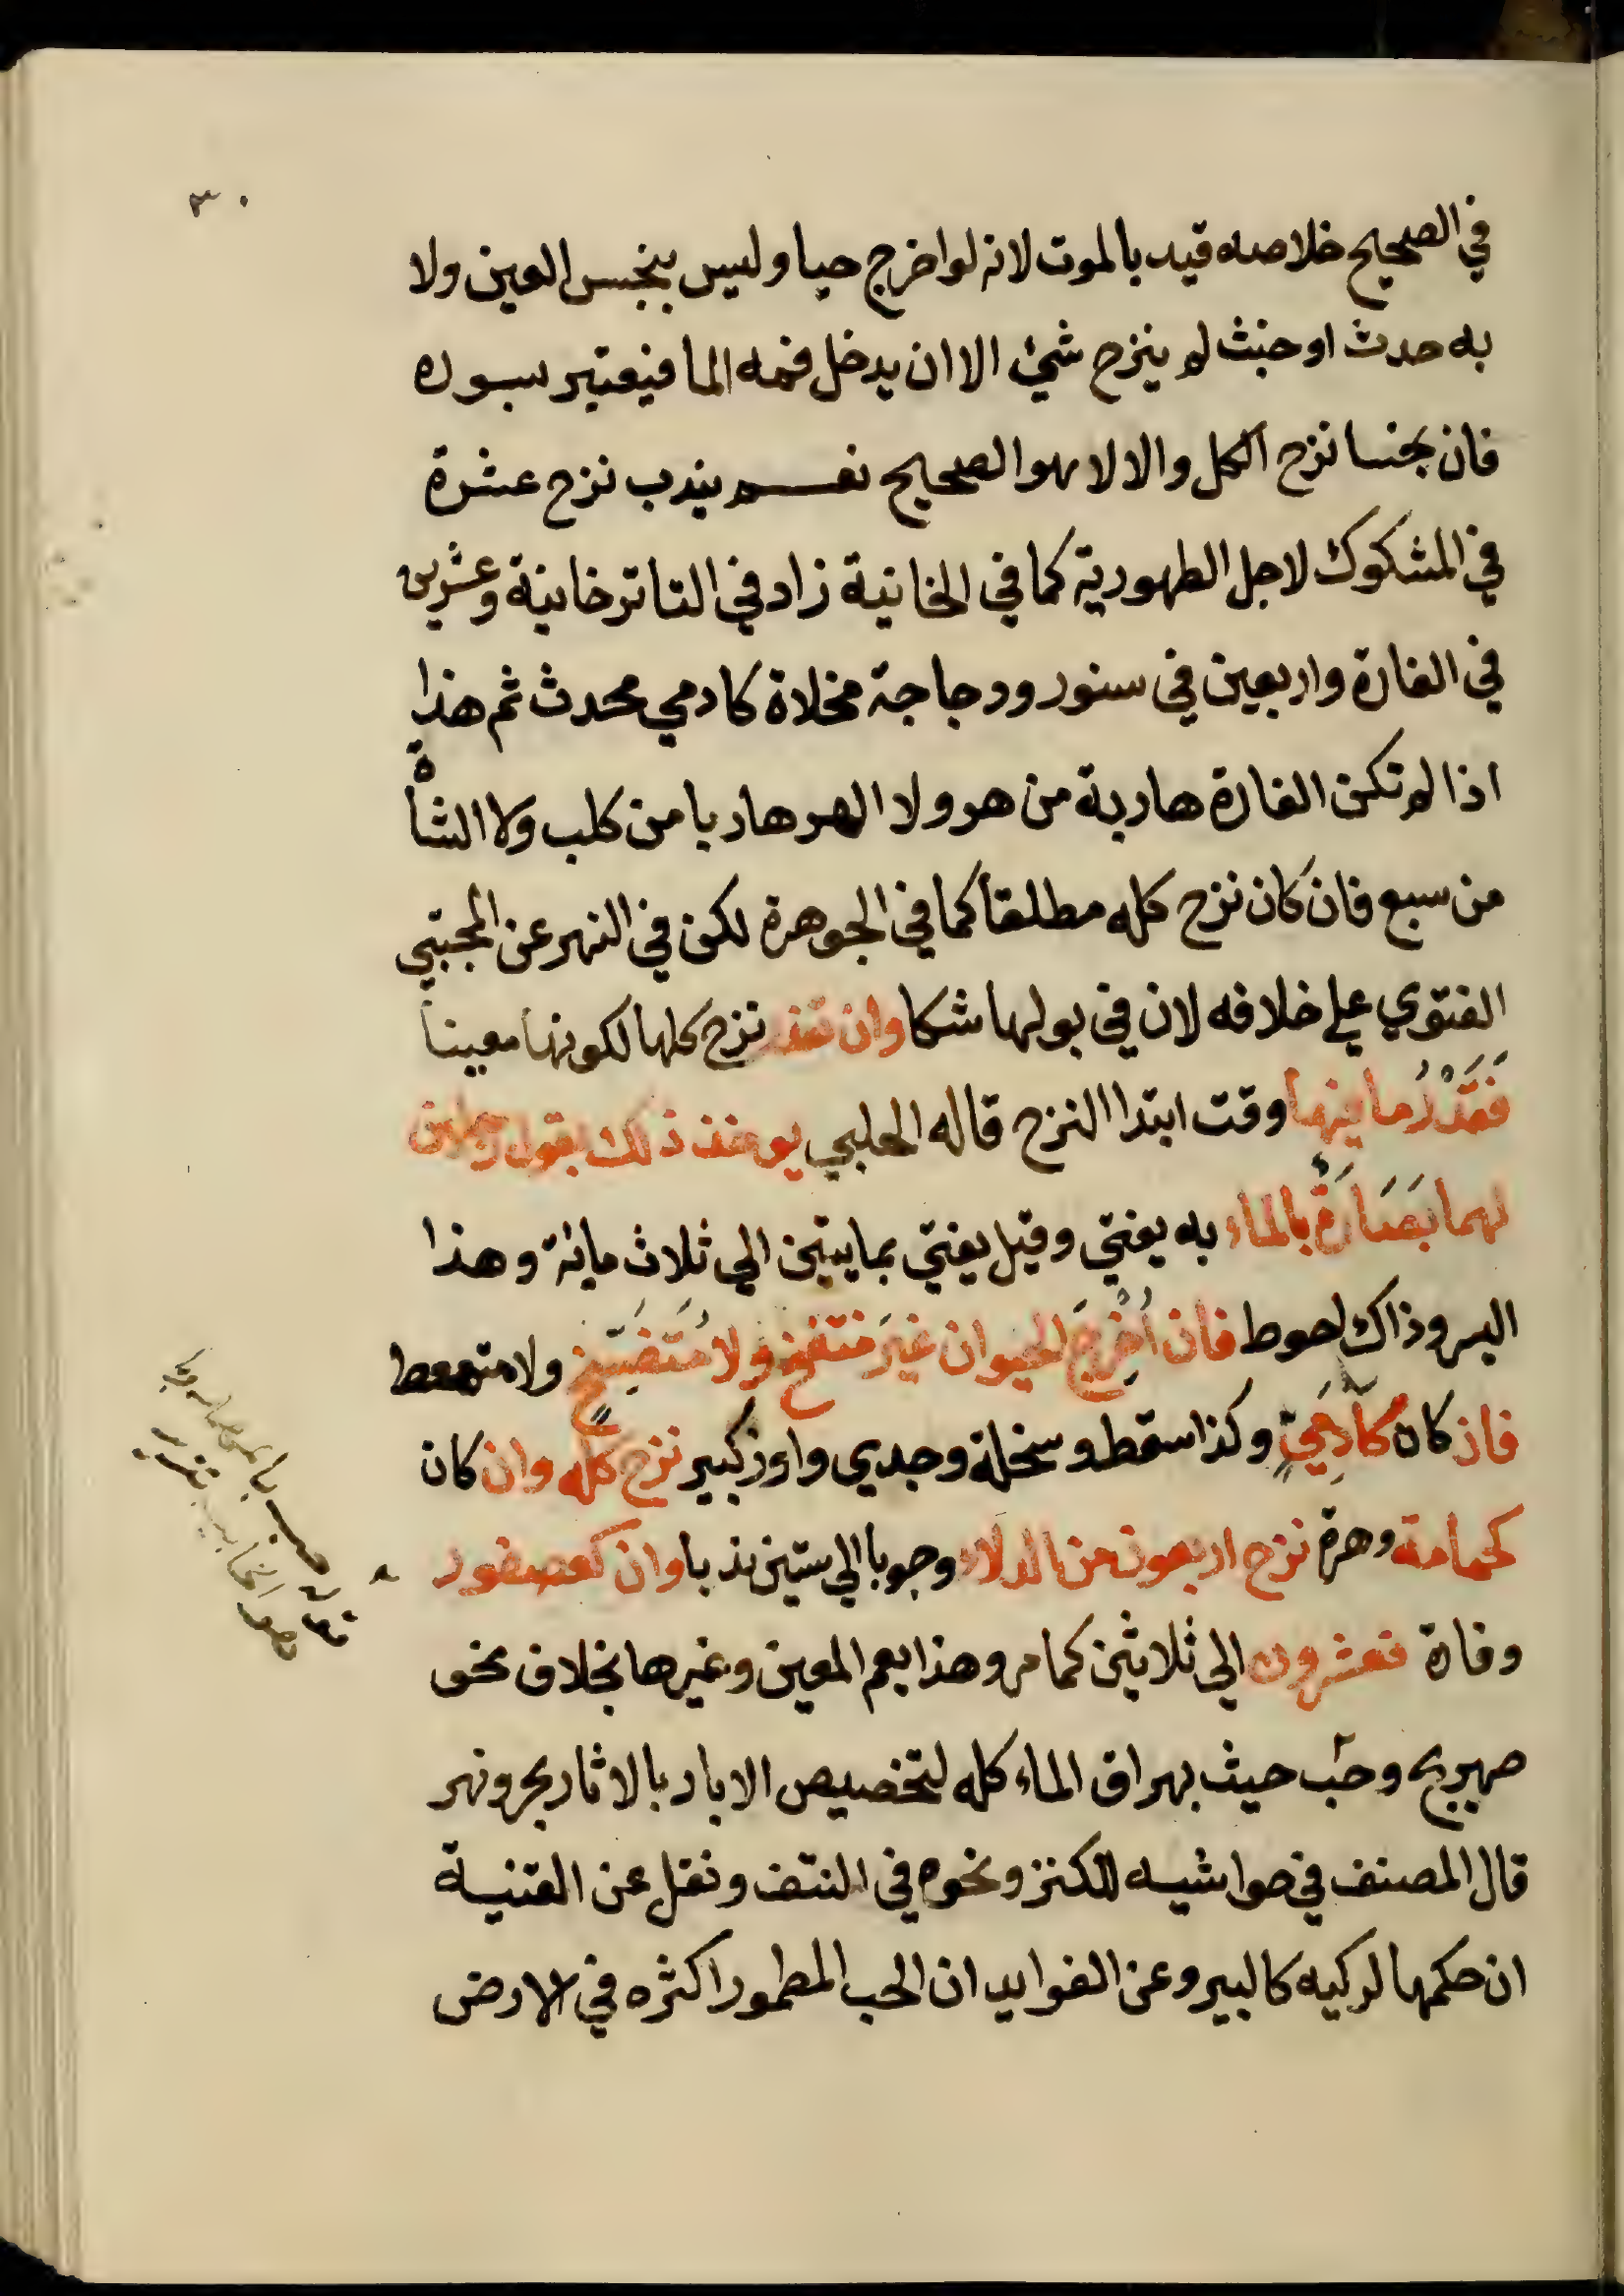 ٣٠
في الصحيح خلاصه قيد بالموت لانه لو اخرج حيا وليس بنجس العين ولا
به حدث او خبث لم ينزح شيء الا ان يدخل فمه الما فيعتبر بسوره
فان نجسا نزح الكل والا لا هو الصحيح نعم يندب نزح عشرة
في المشكوك لاجل الطهورية كما في الخانية زاد في التاترخانية وعشرين
في الفارة واربعين في سنور ودجاجة مخلاة كادمي محدث ثم هذا
اذا لم تكن الفارة هاربة من هر ولا الهر هاربا من كلب ولا الشاة
من سبع فان كان نزح كله مطلقا كما في الجوهرة لكن في النهر عن المجتبي
الفتوي علي خلافه لان في بولها شكا وان تعذر نزح كلها لكونها معينا
فَقَدْرُ ما فيها وقت ابتدا النزح قاله الحلبي يوخذ ذلك بقول رجلين
لهما بَصَارَةٌ بالماء به يفتي وقيل يفتي بمايتين الي ثلاث مائة وهذا
اليسر وذاك احوط فان اُخْرِجَ الحيوان غيَر منتفخ ولا مُتَفَسِّخٍ ولا متمعط
فان كان كآدَمِيٍّ وكذا سقط وسخلة وجدي واوز كبير نزح كله وان كان
كحمامة وهرة نزح اربعون من الدلاء وجوبا الي ستين ندبا وان كعصفور
وفارة فعشرون الي ثلاثين كما مر وهذا يعم المعين وغيرها بخلاف نحو
صهريج وحب حيث يهراق الماء كله لتخصيص الابار بالاثار بحر ونهر
قال المصنف في حواشيه للكنز ونحوه في النتف ونقل عن القنية
ان حكمها لركيه كالبير وعن الفوايد ان الحب المطمور اكثره في الارض